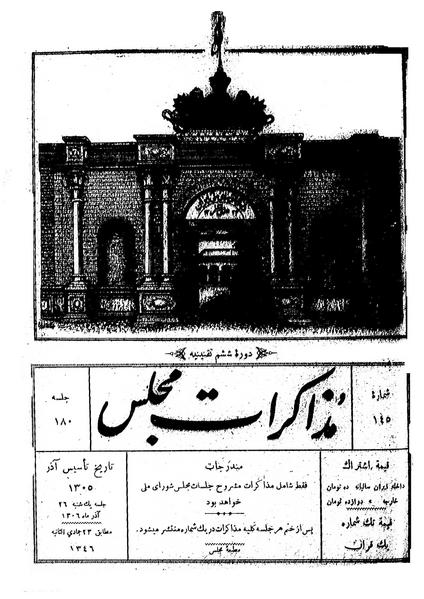 دورهٔ ششم تقنینیه
شمارهٔ
۱۴۵
مذاکرات مجلس
جلسه
۱۸۰
قیمة اشتراک
داخله ایران سالیانه ده تومان
خارجه » دوازده تومان
قیمة تک شماره
یک قران
مندرجات
فقط شامل مذاکرات مشروح جلسات مجلس شورای ملی
خواهد بود
پس از ختم هر جلسه کلیه مذاکرات در یک شماره منتشر میشود.
مطبعهٔ مجلس
تاریخ تأسیس آذر
۱۳۰۵
جلسه یکشنبه ۲۶
آذر ماه ۱۳۰۶
مطابق ۲۳ جمادی الثانیه
۱۳۴۶